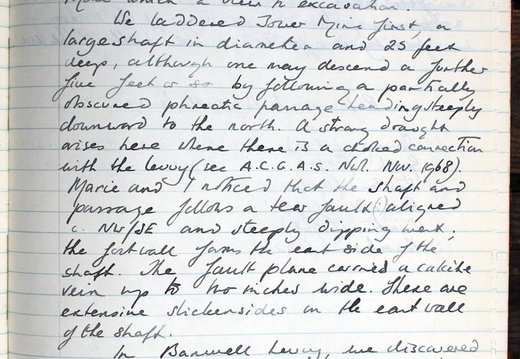 from which a view to excavation.
We laddered Tower Mine first, a
large shaft in diameter and 25 feet
deep, although one may descend a further
five feet or so by following a partially
obscured phreatic passage heading steeply
downward to the north. A strong draught
arises here where there is a choked connection
with the levvy (see A.C.G.A.S. Nwl. Nov. 1968).
Marie and I noticed that the shaft and
passage follows a tear fault(?) aligned
c. NW/SE and steeply dipping west;
the footwall forms the east side of the
shaft. The fault plane carried a calcite
vein up to two inches wide. There are
extensive slickensides on the east wall
of the shaft.
In Banwell Levvy, we discovered